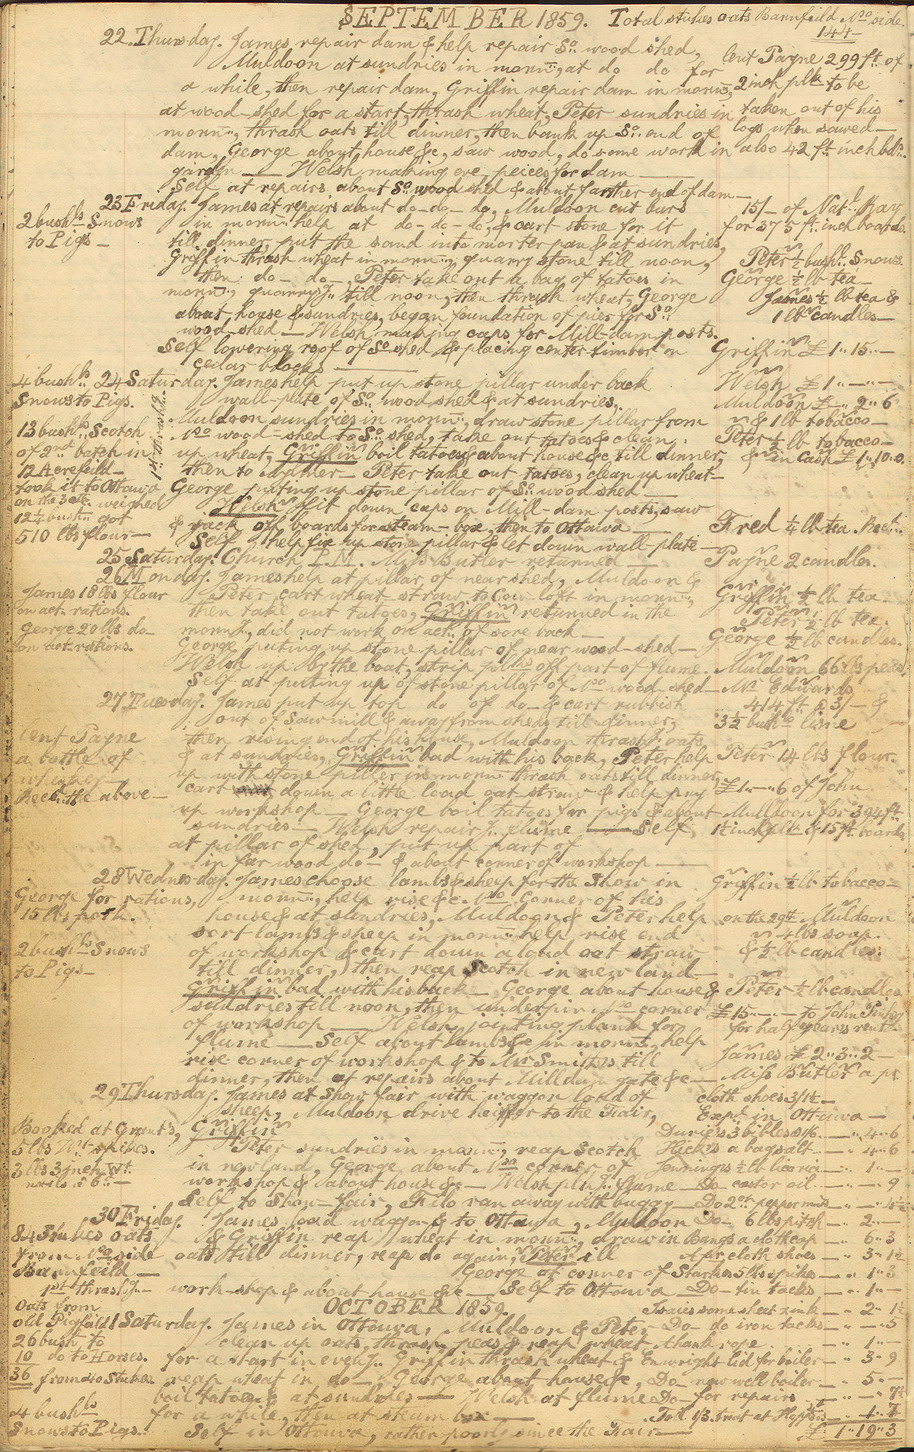 SEPTEMBER 1859. Total stukes oats Barnfeild No. side.
144—
22 Thursday. James repair dam & help repair So. wood shed,
Muldoon at sundries in mornn., at do do for
a while, then repair dam, Griffin repair dam in mornn.,
at wood-shed for a start, thrash wheat, Peter sundries in
mornn., thrash oats till dinner, then bank up So. end of
dam, George about house &c, saw wood, do some work in
garden — Welsh making ove peices for dam —
Self at repairs about So. wood shed & about farther end of dam —
lent Payne 299 ft. of
2 inch plk to be
taken out of his
logs when sawed —
also 42 ft. inch bds.
23 Friday. James at repairs about do- do- do, Muldoon cut burs
in mornn. help at do- do- do, & cart stone for it
till dinner, put the sand into morter pan & at sundries,
Griffin thrash wheat in mornn., quarry stone till noon,
then do- do-, Peter take out a bag of tatoes in
mornn., quarryg. till noon, then thrash wheat, George
about house & sundries, began foundation of pier for So.
wood-shed — Welsh making caps for Mill-dam posts.
Self lowering roof of So. shed, & placing center timber on
cedar blocks —
2 bushls. Snows
to Pigs —
15/- of Natl. Hay
for 375 ft. inch boards.
Peter ½ bushl. Snows
George ½ lb tea —
James ½ lb tea &
1 lb candles —
Griffin £1..15..—
24 Saturday. James help put up stone pillar under back
wall-plate of So. wood shed & at sundries,
Muldoon sundries in mornn., draw stone pillar from
No. wood-shed to So. shed, take out tatoes & clean
up wheat, Griffin boil tatoes & about house &c till dinner,
then to — Peter take out tatoes, clean up wheat —
George putting up stone pillar of So. wood shed —
Welsh fit down caps on Mill-dam posts, saw
& pack off boards for steam-box, then to Ottawa —
Self help fix up stone pillar & let down wall-plate —
4 bushls.
Snows to Pigs.
13 bushls. Scotch
of 2nd. batch in
12 Acrefeild —
took it to Ottawa
on the 3 Oct. weighed
12¼ bushls. got
510 lbs flour —
Welsh £1..—..—
Muldoon £—..2..6
& 1 lb tobacco —
Peter ½ lb tobacco —
& in Cash £1..10..0
Fred ¼ lb tea.
25 Saturday. Church P.M. Miss Butler returned —
Payne 2 candles.
26 Monday. James help at pillar of near shed, Muldoon &
Peter cart wheat straw to Cow loft in mornn.,
then take out tatoes, Griffin returned in the
mornn., did not work on actt. of sore back —
George putting up stone pillar of near wood-shed —
Welsh up by the boat, strip plks off part of flume.
Self at putting up of stone pillar of No. wood shed —
James 18 lbs flour
on act. rations.
George 20 lbs do —
on act. rations.
Griffin ½ lb tea.
Peter ½ lb tea.
George ½ lb candles.
Muldoon 66 lbs peas.
27 Tuesday. James put up top do of do- & cart rubbish
out of Sawmill & away from sheds till dinner,
then rising end of his house, Muldoon thrash oats
& at sundries, Griffin bad with his back, Peter help
up with stone piller in mornn. thrash oats till dinner,
cart down a little load oat straw & help pry
up workshop — George boil tatoes for pigs & about
sundries — Welsh repairg. flume — Self
at pillar of shed, put up part of
in far wood do- & about corner of workshop —
lent Payne
a bottle of
whiskey —
Recd. the above —
Mr. Edwards
414 ft @ 3/- &
3½ bushls lime
Peter 14 lbs flour.
£1..—..6 of John
Muldoon for 394 ft.
1½ inch plk & 15 ft. boards
28 Wednesday. James choose lambs & sheep for the Show in
mornn., help rise &c No. Corner of his
house & at sundries, Muldoon & Peter help
sort lambs & sheep in mornn. help rise end
of workshop & cart down a load oat straw
till dinner, then reap Scotch in new land —
Griffin bad with his back — George about house &
sundries till noon, then underpin No. corner
of workshop — Welsh jointing plank for
flume — Self about lambs &c in mornn., help
rise corner of workshop & to Mr. Smith's till
dinner, then at repairs about Milldam gate &c —
George for rations,
15 lbs pork.
2 bushls Snows
to Pigs —
Griffin ½ lb tobacco —
on the 29th. Muldoon
4 lbs soap.
& ½ lb candles.
Peter ½ lb candles.
£15..—..— to John
for half years rent.
James £2..3..2—
Miss Butler a pr.
cloth shoes 3/1½ —
29 Thursday. James at Show fair with waggon load of
sheep, Muldoon drive heiffer to the Fair,
Griffin
Peter sundries in mornn., reap Scotch
in newland, George about No. corner of
workshop & about house &c — Welsh flume —
Self to Show-fair, Filo ran away with buggy —
Booked at Grant's,
5 lbs Wt. spikes.
3 lbs 3 inch Wt.
nails @ 6d. —
Expd. in Ottawa —
Durie's 3 bibles — ..4..6
Hick's a bag salt — ..4..6
Jennings ½ lb licorice — ..1..—
Do castor oil — ..—..9
Do 2 oz. peppermint — ..—..
30 Friday. James load waggon & to Ottawa, Muldoon
& Griffin reap wheat in mornn., draw in
oats till dinner, reap do again, Peter ill
George at corner of
work-shop & about house &c — Self to Ottawa —
84 Stukes oats
from No. side
Barnfeild —
1st. thrashg. —
oats from
old Pigfeild
26 bush. to
10 do to Horses.
36 from 40 stukes
Do 6 lbs pitch — ..2..—
Bangs a cloth cap — ..6..3
A pr cloth shoes — ..3..1½
Starke's 5 lbs spikes — ..1..3
Do tin tacks — ..1..—
some sheet zink — ..2..1½
Do do iron tacks — ..—..5
OCTOBER 1859.
1 Saturday. James in Ottawa, Muldoon & Peter
clean up oats, thrash peas & reap wheat
for a start in eveng., Griffin thrash wheat &
reap wheat in do — George about house &c,
boil tatoes & at sundries — Welsh at flume
for a while, then at steam box —
Self in Ottawa, rather poorly since the Fair —
4 bushls
Snows to Pigs.
a hank rope — ..1..—
Enwright lid for boiler — ..3..9
Do new well boiler — ..5..—
Do for repairs — ..—..7½
£1..19..3